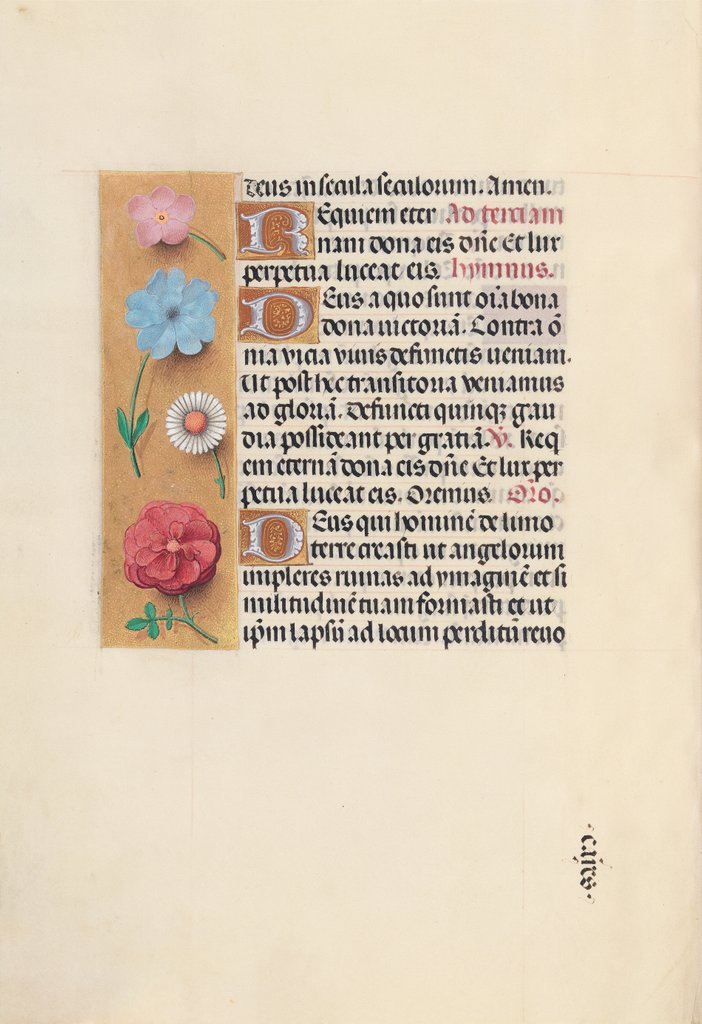 deus in secula seculorum. Amen.
Requiem eter Ad terciam
nam dona eis dñe Et lux
perpetua luceat eis. hymnus.
Deus a quo sunt oi̅a bona
dona uictoriā. Contra ō
nia vicia viuis defunctis ueniam.
Ut post hec transitoria veniamus
ad gloriā. Defuncti quinqꝫ gau
dia possideant per gratiā. V̅. Req
em eternā dona eis dñe Et lux per
petua luceat eis. Oremus. Or̅o.
Deus qui hominē de limo
terre creasti ut angelorum
impleres ruinas ad ymaginē et si
militudinē tuam formasti et ut
ip̄m lapsū ad locum perditū reuo